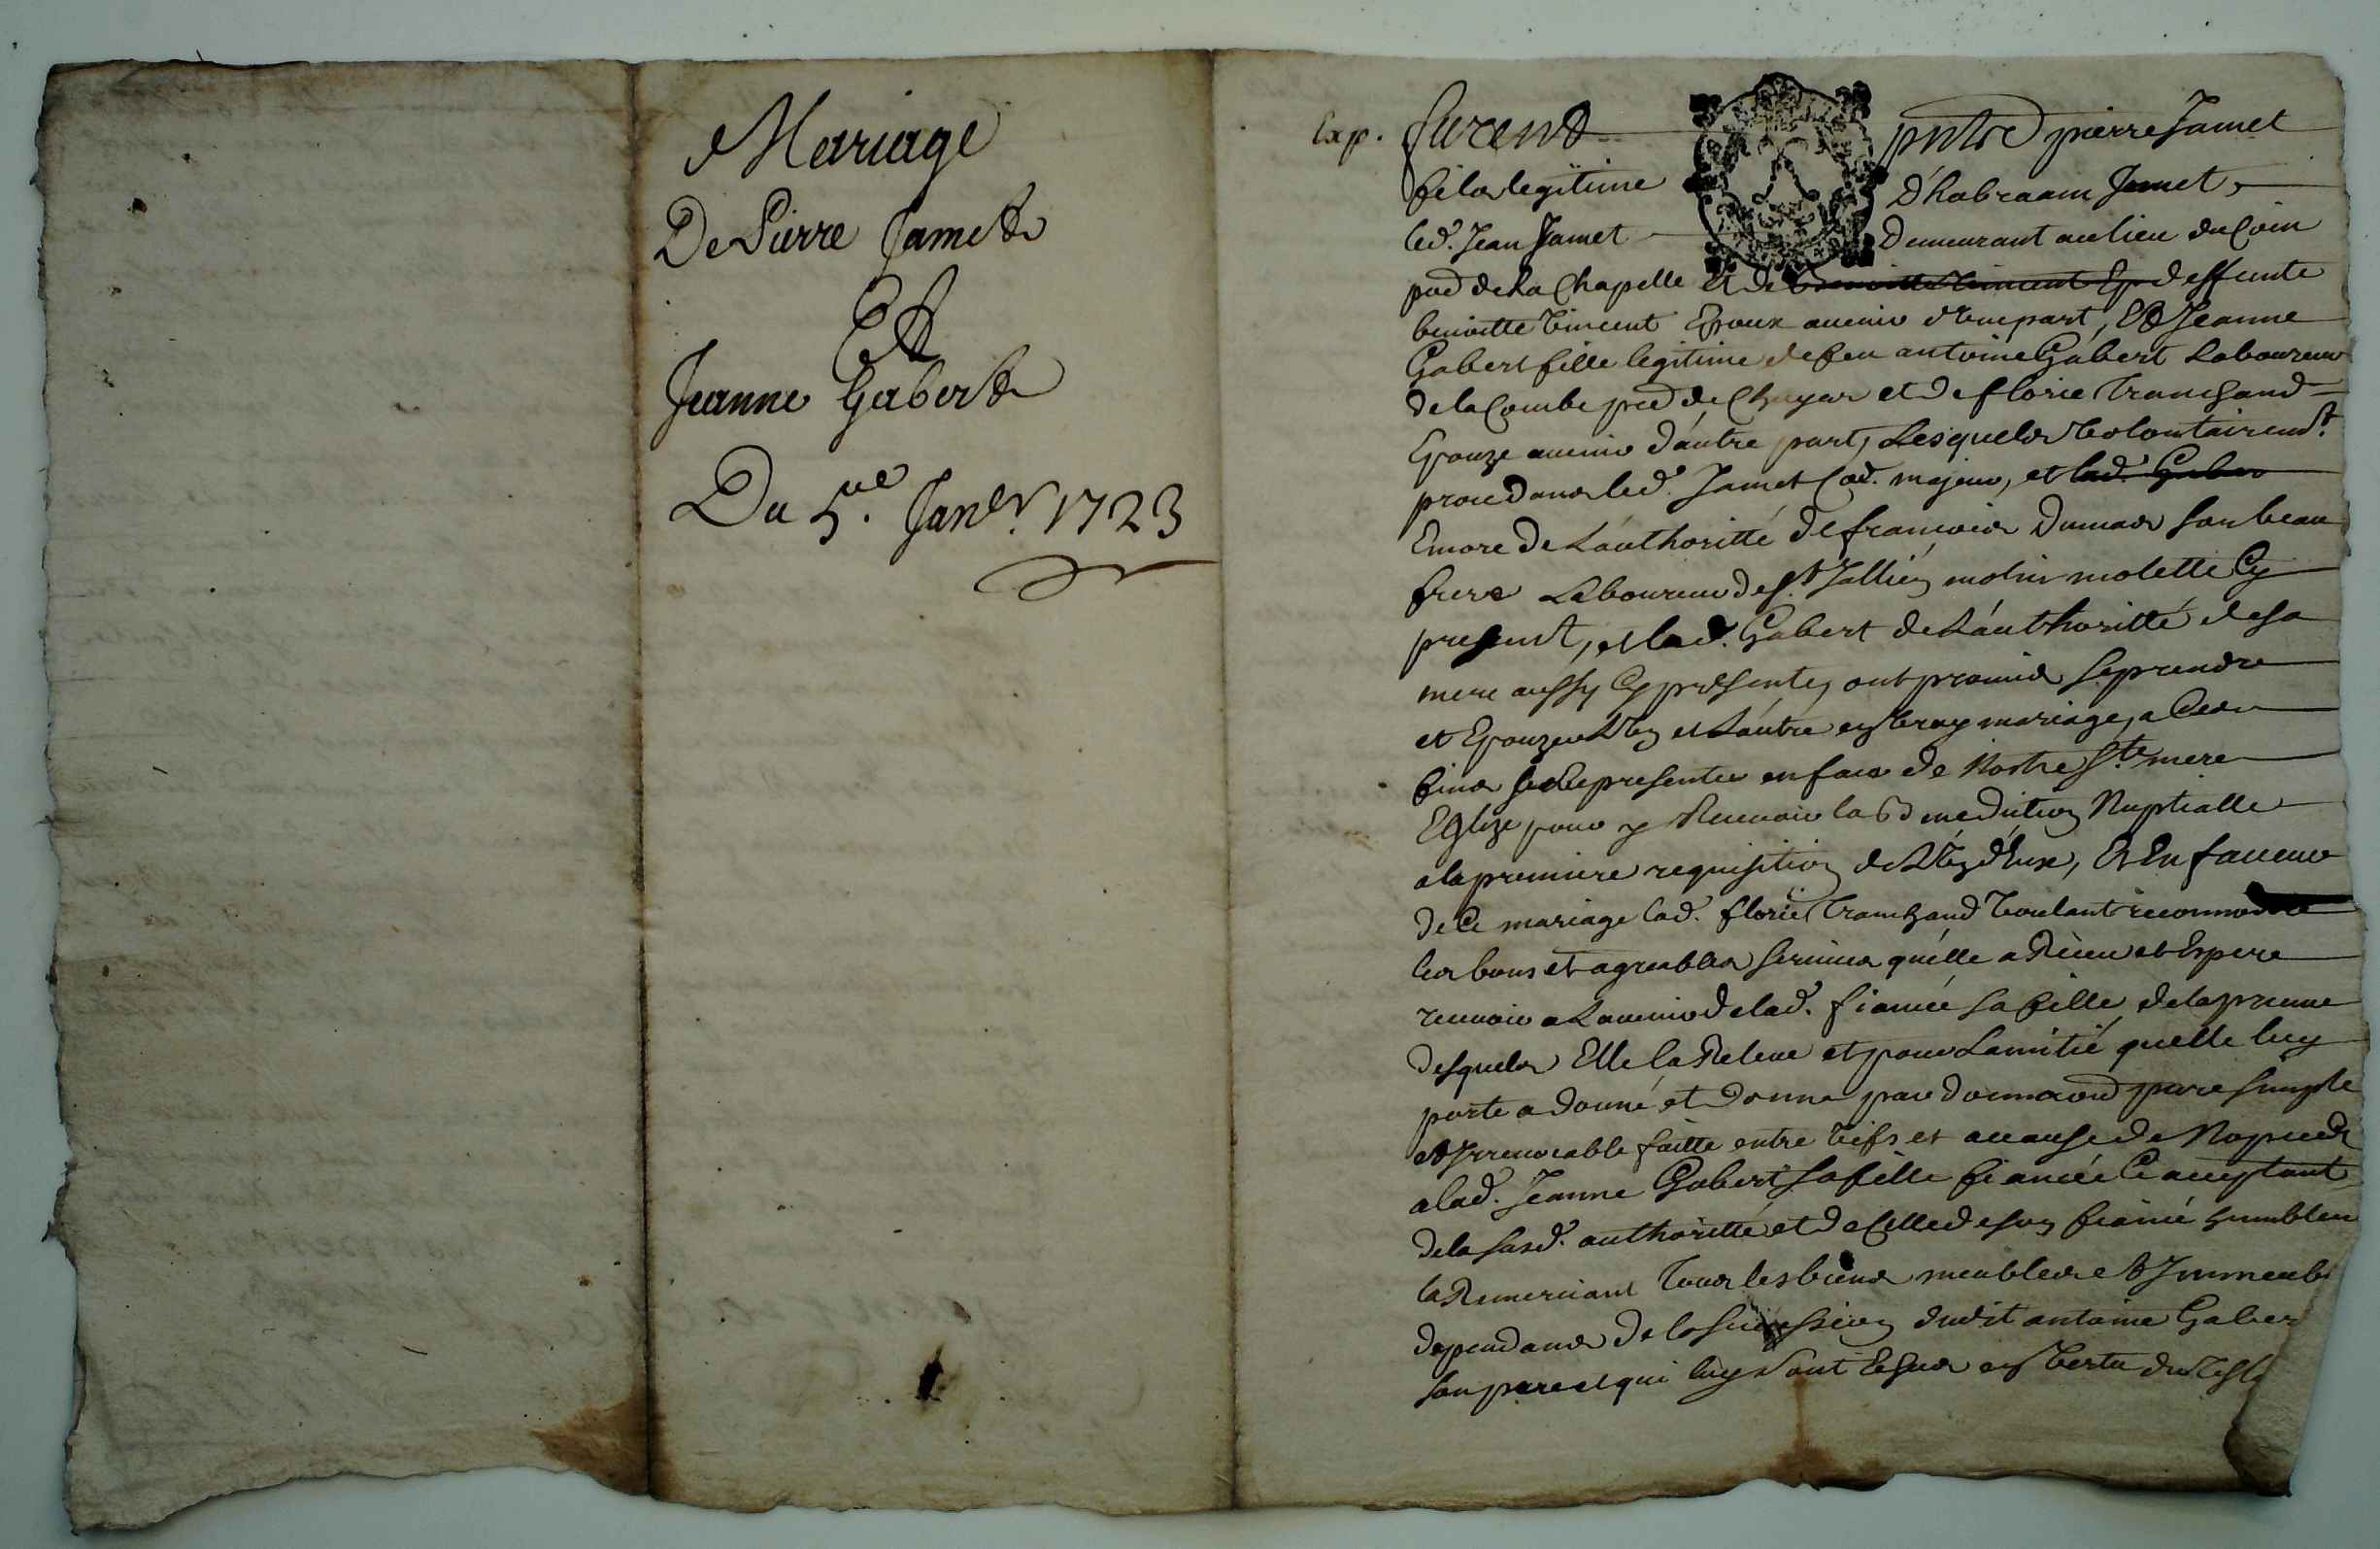 Mariage
De Pierre Jamet
Et
Jeanne Gabert
Du 5.e Janer. 1723
Exp. furent pntre pierre Jamet
fils legitime D'habraam Jamet
led. Jean Jamet Demeurant au lieu du Coin
pad de La Chapelle et de deffunte
benoitte Vincent Epoux avenir d'Une part, Et Jeanne
Gabert fille legitime de feu antoine Gabert Laboureur
de la Combe pad de Chuyer et de florie Tranchand
Epouze avenir d'autre part, Lesquels Volontairemt.
procedans led. Jamet Cod. majeur, et lad. Gaber
Encore de L'authoritté de francois Dumas son beau
frere Laboureur de St. Jullien molin molette Cy
present, et lad. Gabert de L'authoritté de sa
mere aussy Cy presente, ont promis se prendre
et Epouzer L'Un et L'autre en Vray mariage, a Ces
fins se Representer en face de Nostre Ste mere
Eglize pour y Recevoir la Benediction Nuptialle
a la premiere requisition de L'Un d'Eux, Et En faveur
de Ce mariage lad. florie Tranchand Voulant reconnoitre
les bons et agreables services qu'elle a Receu et Espere
recevoir a L'avenir de lad. fiancée sa fille, de la preuve
desquels Elle la Releve et pour L'amitié qu'elle luy
porte a donné et donne par donnaon pure simple
et Irrevocable faitte entre Vifs et a cause de Nopces
a lad. Jeanne Gabert sa fille fiancée Ce acceptant
de la susd. authoritté et de Celle de son fiancé humblem
la Remerciant Tous les biens meubles et Immeub
dependans de la succession dudit antoine Gaber
son pere et qui luy sont Echus en Vertu du Testa